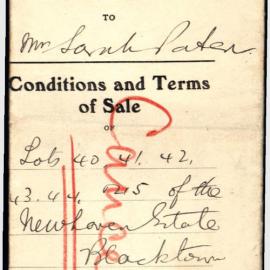 TO
Mrs Sarah Pater
Conditions and Terms
of Sale
OF
Lots 40 41. 42.
43. 44. 45 of the
Newhaven Estate
Blacktown